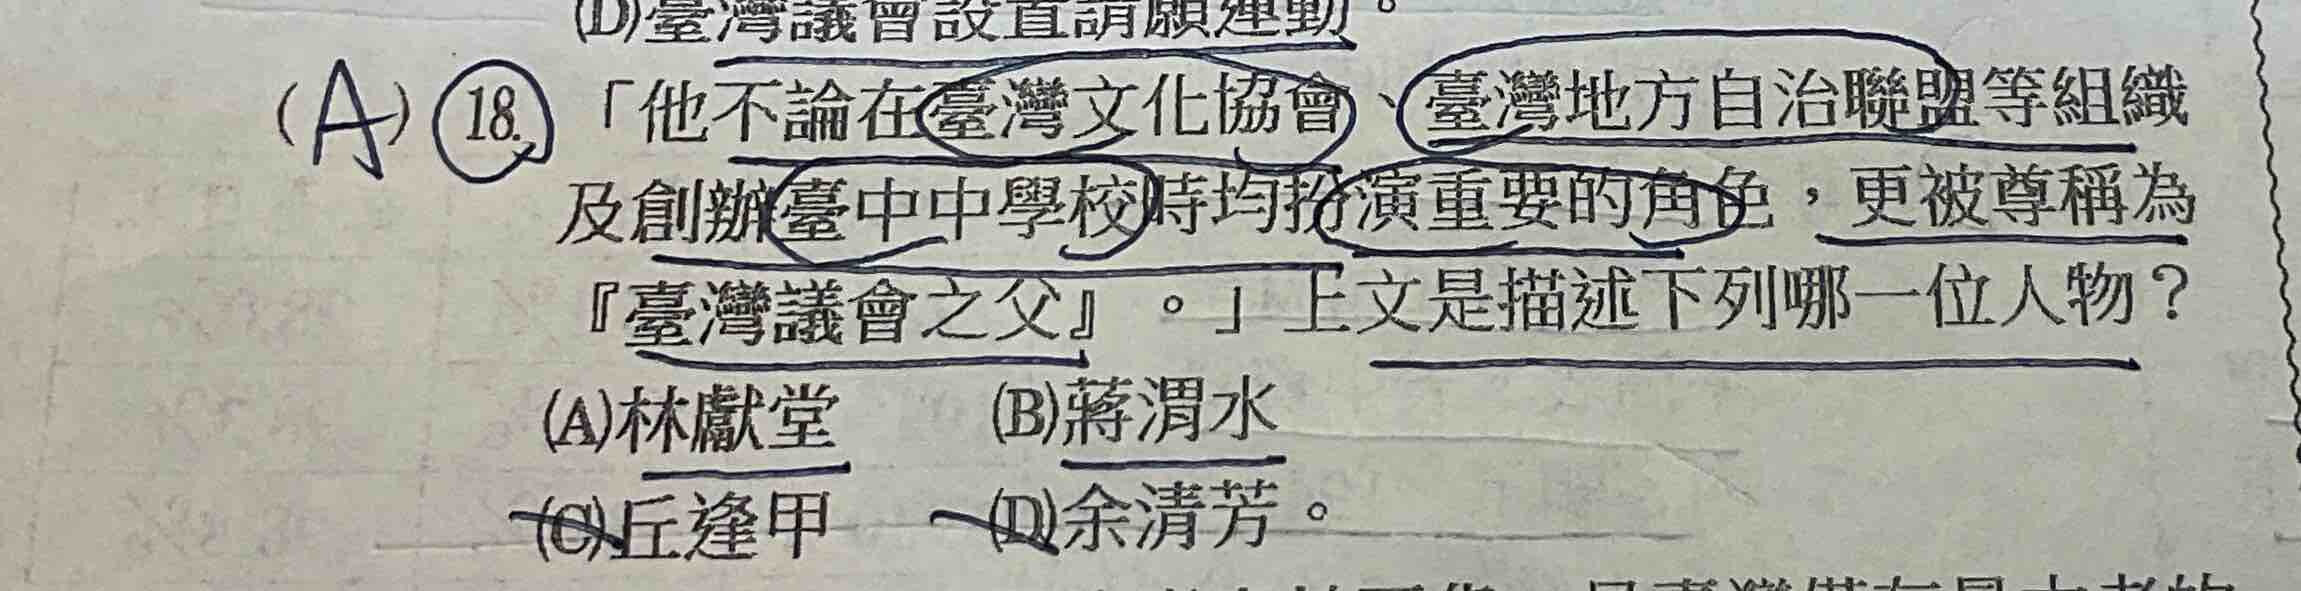 (D)臺灣議會設置請願運動。
(A) 18. 「他不論在臺灣文化協會、臺灣地方自治聯盟等組織
及創辦臺中中學校時均扮演重要的角色，更被尊稱為
『臺灣議會之父』。」上文是描述下列哪一位人物？
(A)林獻堂 (B)蔣渭水
(C)丘逢甲 (D)余清芳。